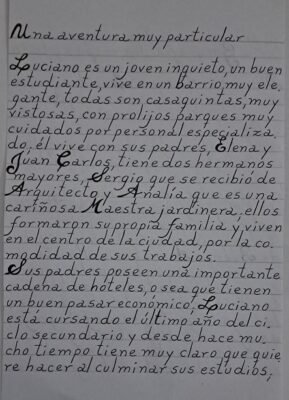 Una aventura muy particular
Luciano es un joven inquieto, un buen
estudiante, vive en un barrio, muy ele_
gante, todas son casaquintas, muy
vistosas, con prolijos parques muy
cuidados por personal especializa_
do, él vive con sus padres, Elena y
Juan Carlos, tiene dos hermanos
mayores, Sergio que se recibió de
Arquitecto y Analía que es una
cariñosa Maestra jardinera, ellos
formaron su propia familia y viven
en el centro de la ciudad, por la co_
modidad de sus trabajos.
Sus padres poseen una importante
cadena de hoteles, o sea que tienen
un buen pasar económico, Luciano
está cursando el último año del ci_
clo secundario y desde hace mu_
cho tiempo tiene muy claro que quie_
re hacer al culminar sus estudios,